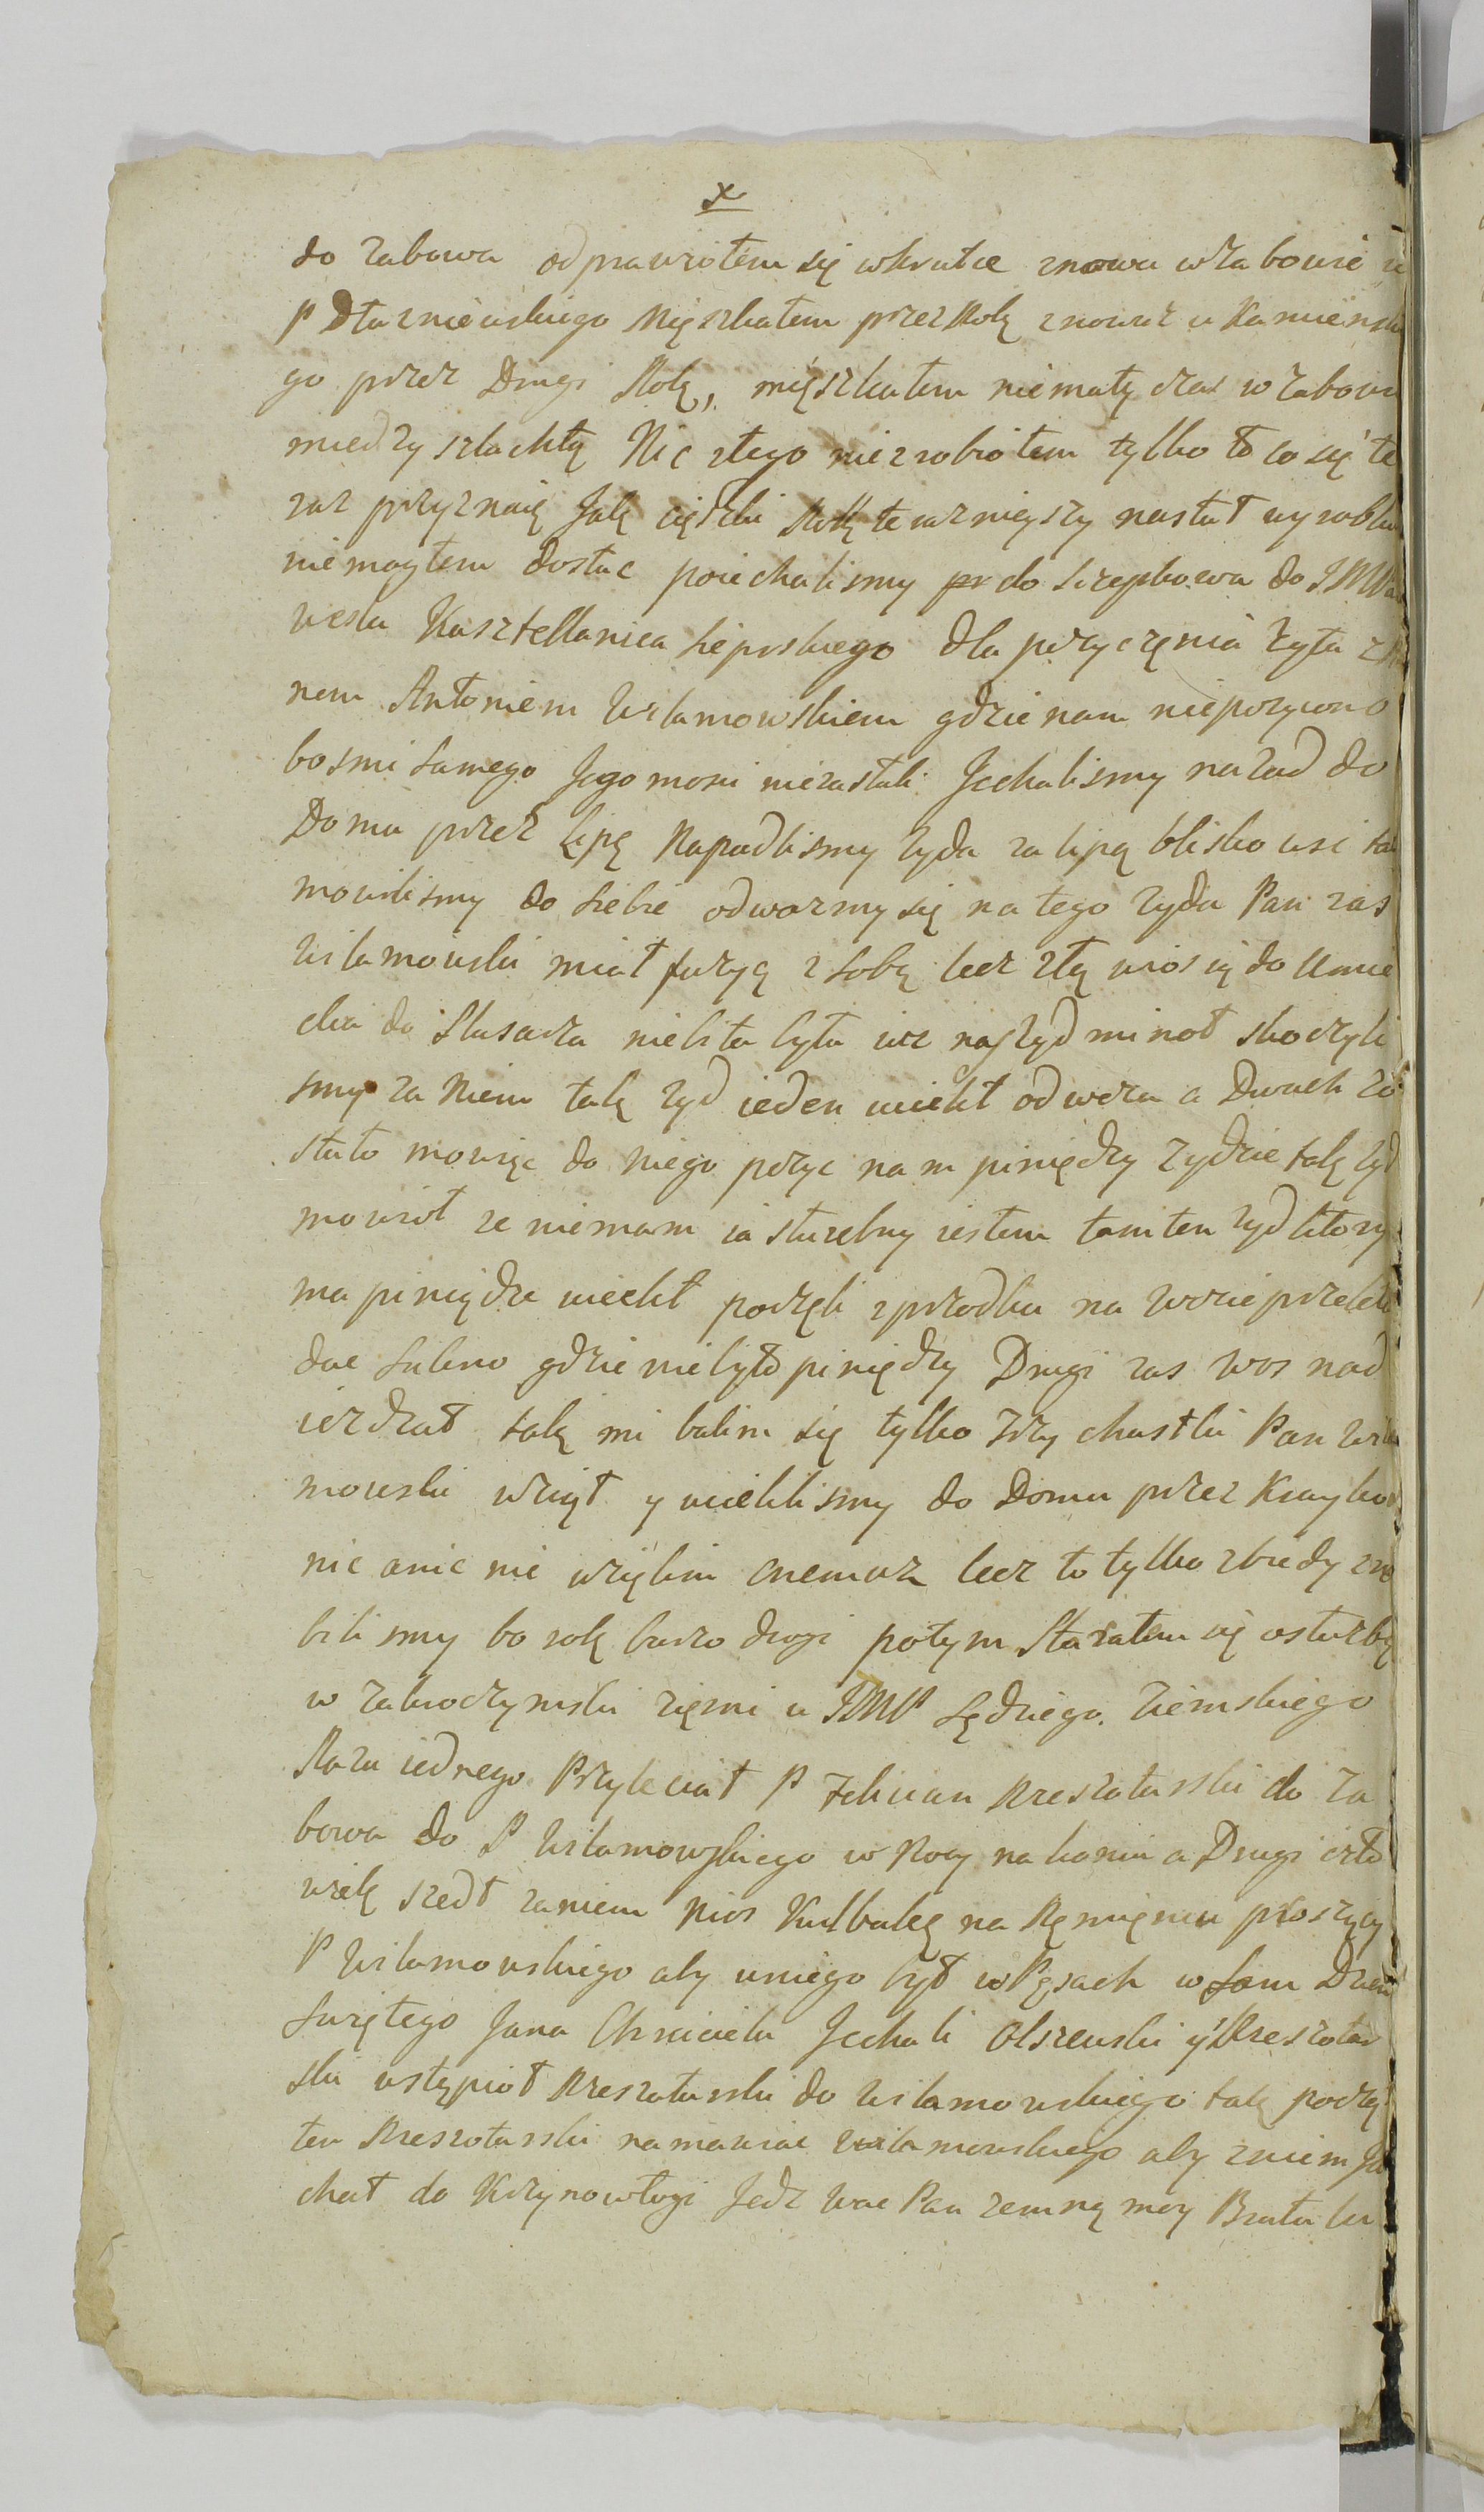 x
do zabowa odprawiołem się wkrutce znowu wzabowie u
P Dłuzniewskiego Męszkałem przez Rok znowuz u Kamiensk
go przez Drugi Rok, męszkałem niemały czas w zabowi
miedzy szlachtą Nic złego nie zrobiołem tylko to co się te
raz przyznaię Jak cięszki Rok terazniejszy nastał wyrobku
niemogłem dostac poiechalismy do Szczepkowa do JMP
wesla Kasztellanica Sieprskiego dla pozyczęnia Zyta z
nem Antoniem Wilamowskiem gdzie nam niepozyczono
bosmi samego Jegomosci niezastali Jechalismy nazad do
Domu przez Lipę Napadlismy Zyda za lipą blisko wsi tak
mowilismy do siebie odwozmy się na tego zyda Pan zas
Wilamowski miał fuzyą z sobą lecz złą wiosł ią do Unie
cka do Slusarza niebita była iuz nas zyd minoł skoczyli
smy za Niem tak zyd ieden uciekł od woza a Dwuch zo
stało mowiąc do niego pozyc nam piniędzy zydzie tak zyd
mowioł ze niemam ia sluzebny iestem tamten zyd ktory
ma piniądze uciekł poczęli zprzodku na wozie przekła
dac sukno gdzie niebyło piniędzy Drugi zas wos nad
iezdzał tak mi balim się tylko trzy chustki Pan Wila
mowski wziął y uciklismy do Domu przez Krzyko
nic a nic nie wzięlim lecz to tylko zbiedy zro
bilismy bo rok barzo drogi potym Starałem się osłuzbę
w zakroczymski ziemi u JMP Sędziego Ziemskiego
Razu iednego Przyleciał P Felician Kreszotarski do Za
bowa do P Wilamowskiego w Nocy na koniu a Drugi czło
wiek szedł zaniem nios Kulbakę na Ręmięniu proszący
P Wilamowskiego aby uniego był w Pęsach w sam Dzień
swiętego Jana Chrzciciela Jechali Olszewski y Kreszotar
ski wstąpioł Kreszotarski do Wilamowskiego tak począł
ten Kreszotarski namawiac Wilamowskiego aby zniem Je
chał do Krzynowłogi Jedz Wac Pan zemną moy Bratu ku